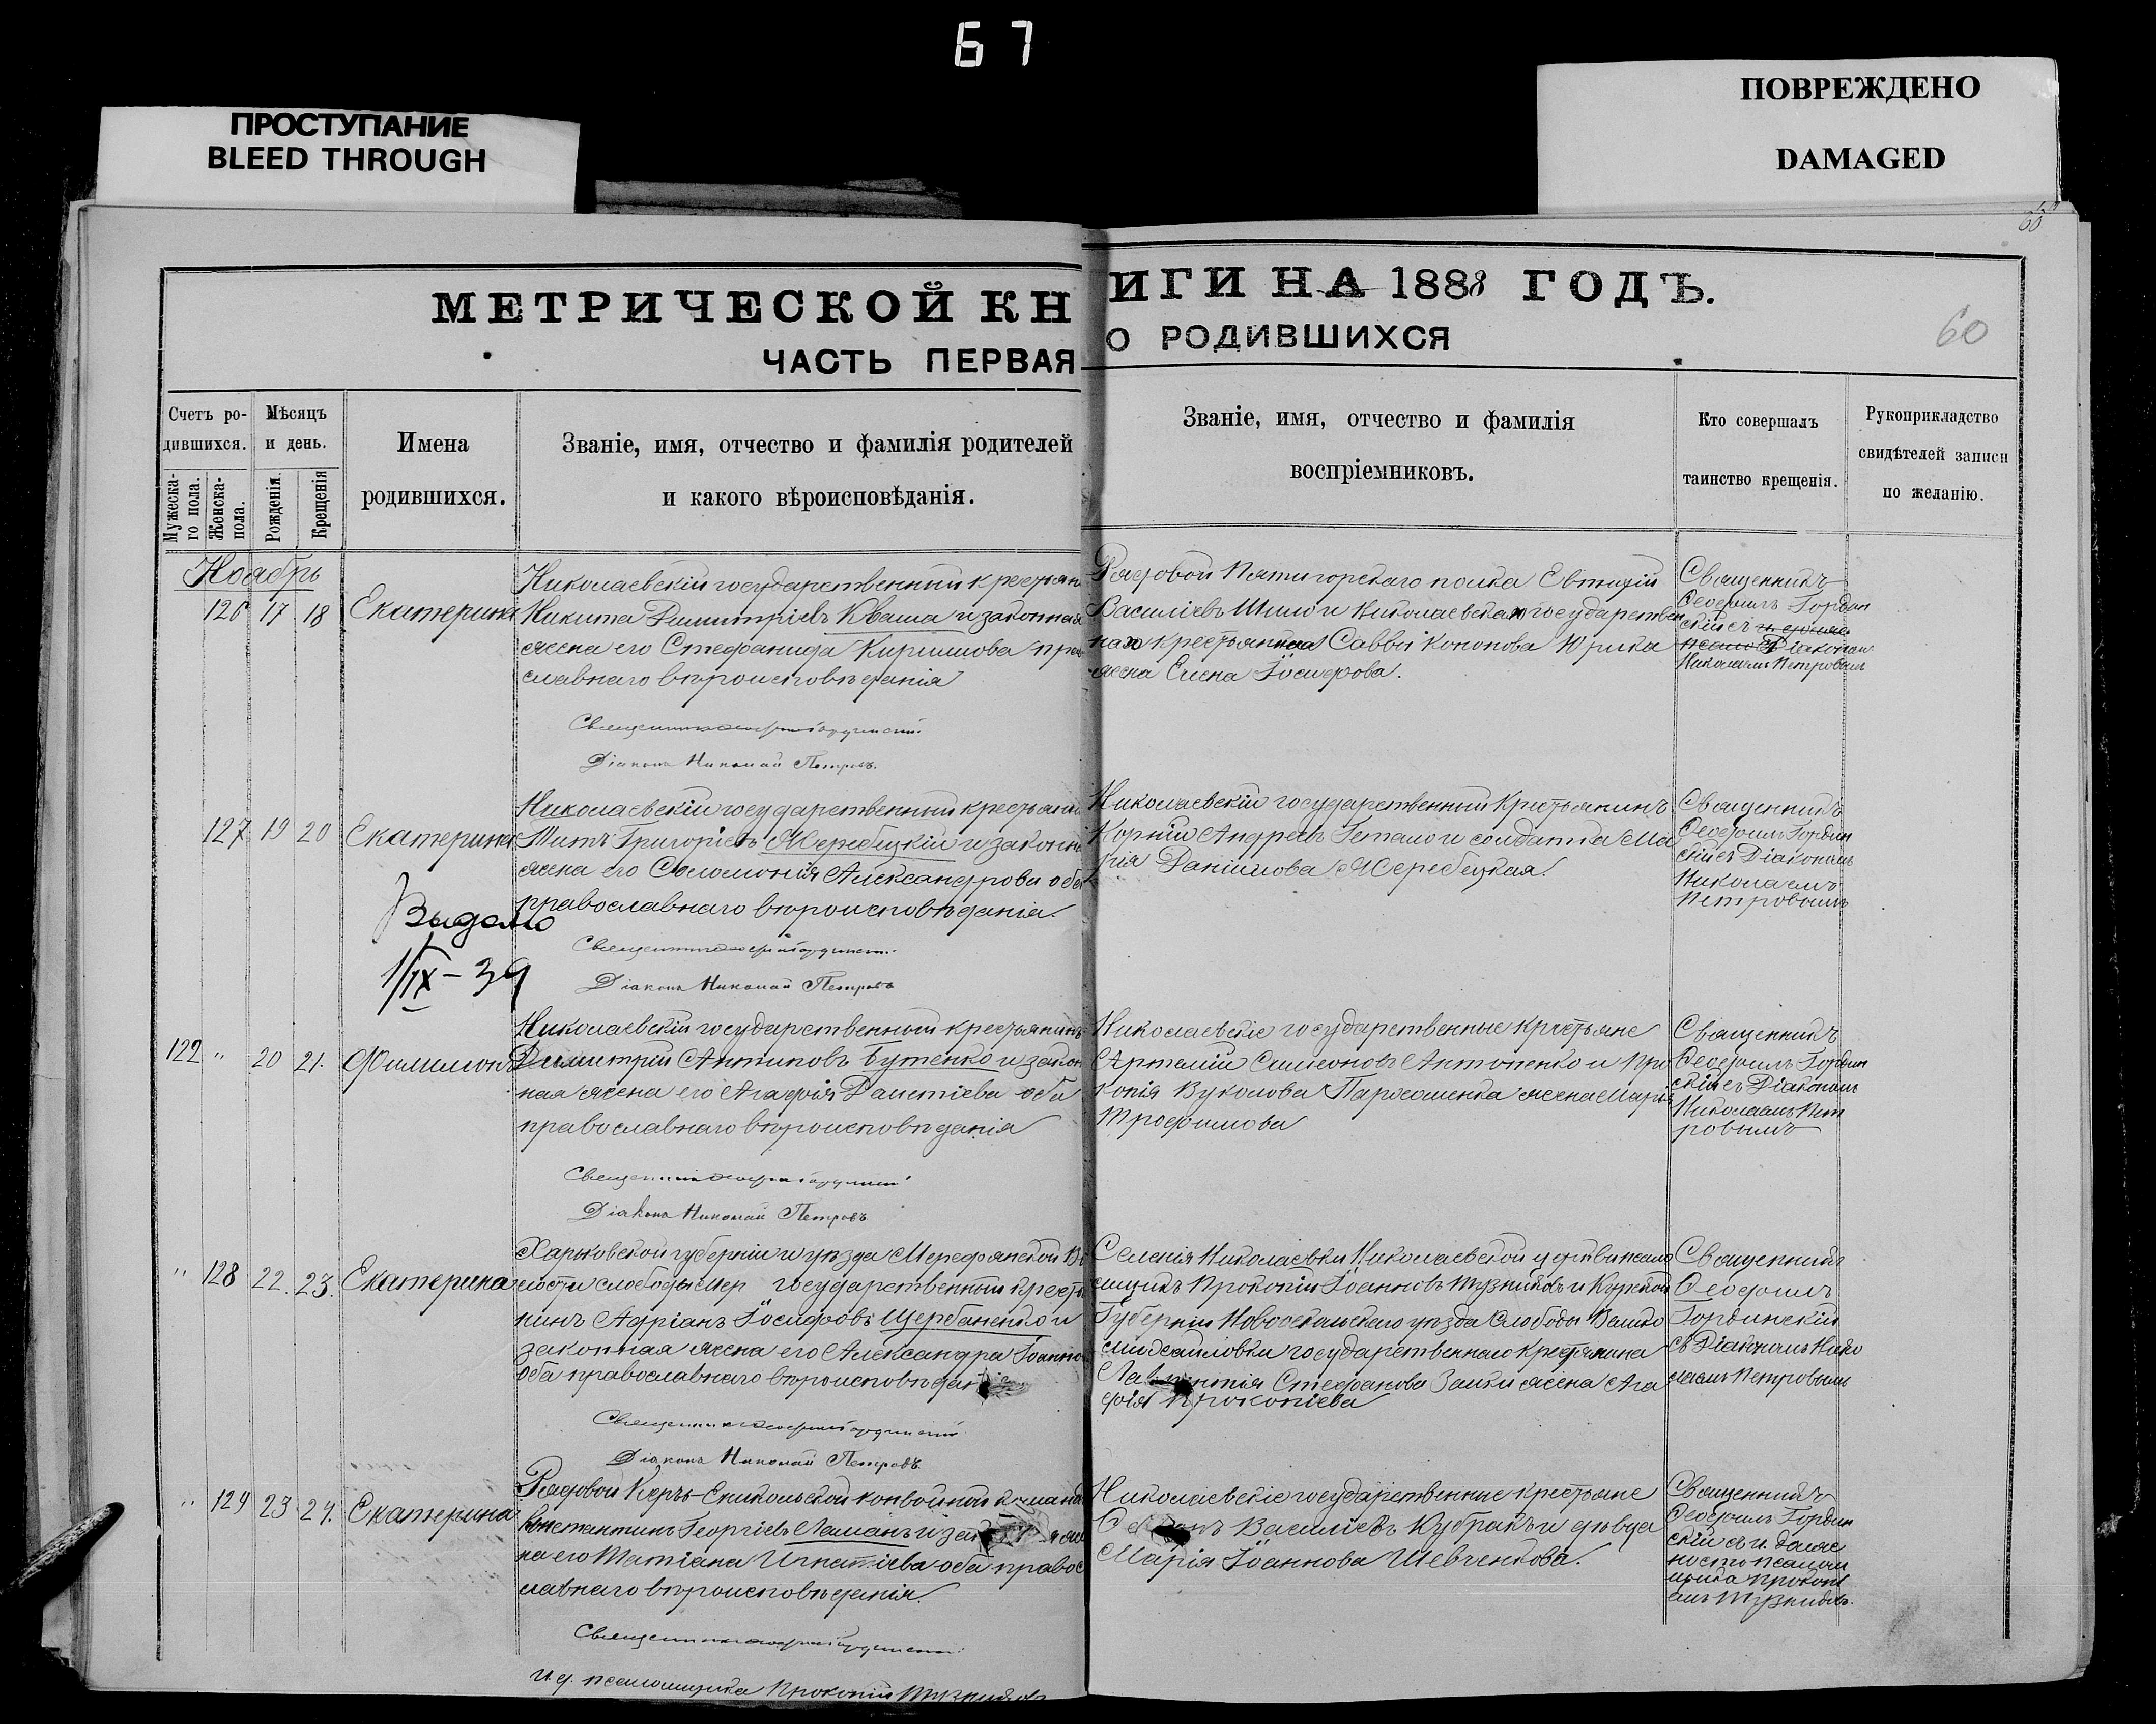 67
ПРОСТУПАНИЕ
BLEED THROUGH
ПОВРЕЖДЕНО
DAMAGED
МЕТРИЧЕСКОЙ КНИГИ НА 1888 ГОДЪ.
ЧАСТЬ ПЕРВАЯ О РОДИВШИХСЯ
60
Счетъ ро-
дившихся.
Мужеска-
го пола.
Женска-
пола.
Мѣсяцъ
и день.
Рожденія.
Крещенія
Имена
родившихся.
Званіе, имя, отчество и фамилія родителей
и какого вѣроисповѣданія.
Званіе, имя, отчество и фамилія
воспріемниковъ.
Кто совершалъ
таинство крещенія.
Рукоприкладство
свидѣтелей записи
по желанію.
Ноябрь
126 17 18 Екатерина
Николаевскій государственный крестьян
Никита Димитріевъ Кваша и законная
жена его Стефанида Кириллова пра
славнаго вѣроисповѣданія
Діаконъ Николай Петровъ.
Рядовой Пятигорскаго полка Евтихій
Василіевъ Шило и Николаевская государствен
ная крестьянка Саввы Кононова Юрика
жена Елена Іосифова.
Священникъ
Феофилъ Гордин
скій съ
Діаконом
Николаемъ Петровымъ
127 19 20 Екатерина
Николаевскій государственный крестьянин
Титъ Григорьевъ Жеребецкій и законна
жена его Соломонія Александрова оба
православнаго вѣроисповѣданія.
Діаконъ Николай Петровъ
Николаевскій государственный крестьянинъ
Корній Андреевъ Гетало и солдатка Ма
рія Даніилова Жеребецкая.
Священникъ
Феофилъ Гордин
скій съ Діакономъ
Николаемъ
Петровымъ
Выдано
1/IX-39
122 " 20 21. Филимонъ
Николаевскій государственный крестьянинъ
Димитрій Антиповъ Бутенко и закон
ная жена его Агафія оба
православнаго вѣроисповѣданія
Діаконъ Николай Петровъ
Николаевскіе государственные крестьяне
Артемій Симеоновъ Антоненко и Про
копія Вуколова Пархоменка жена Марія
Трофимова
Священникъ
Феофилъ Гордин
скій съ Діакономъ
Николаемъ Пет
ровымъ
" 128 22. 23. Екатерина
Харьковской губерніи и уѣзда Мерефянской Во
лости слободы Мер государственный крестья
нинъ Адріанъ Іосифовъ Щербаненко и
законная жена его Александра Іоаннов
оба православнаго вѣроисповѣдан
Діаконъ Николай Петровъ
Селенія Николаевки Николаевской церкви псало
мщикъ Прокопій Іоанновъ Тузниковъ и Курской
Губерніи Новооскольскаго уѣзда Слободы
государственнаго крестьянина
Стефанова Заики жена Ага
фія Прокопіева
Священникъ
Феофилъ
Гординскій
съ Діакономъ Нико
лаемъ Петровымъ
" 129 23 24. Екатерина
Рядовой Керчь-Еникольской конвойной команды
Константинъ Георгіевъ Ламанъ и
на его Татіана Игнатіева оба правос
лавнаго вѣроисповѣданія.
И. д. псаломщика Прокопій Тузниковъ
Николаевскіе государственные крестьяне
Василіевъ Кубракъ и дѣвица
Марія Іоаннова Шевченкова.
Священникъ
Феофилъ Гордин
скій съ и. долж
ность псалом
щика Прокопі
емъ Тузниковъ.